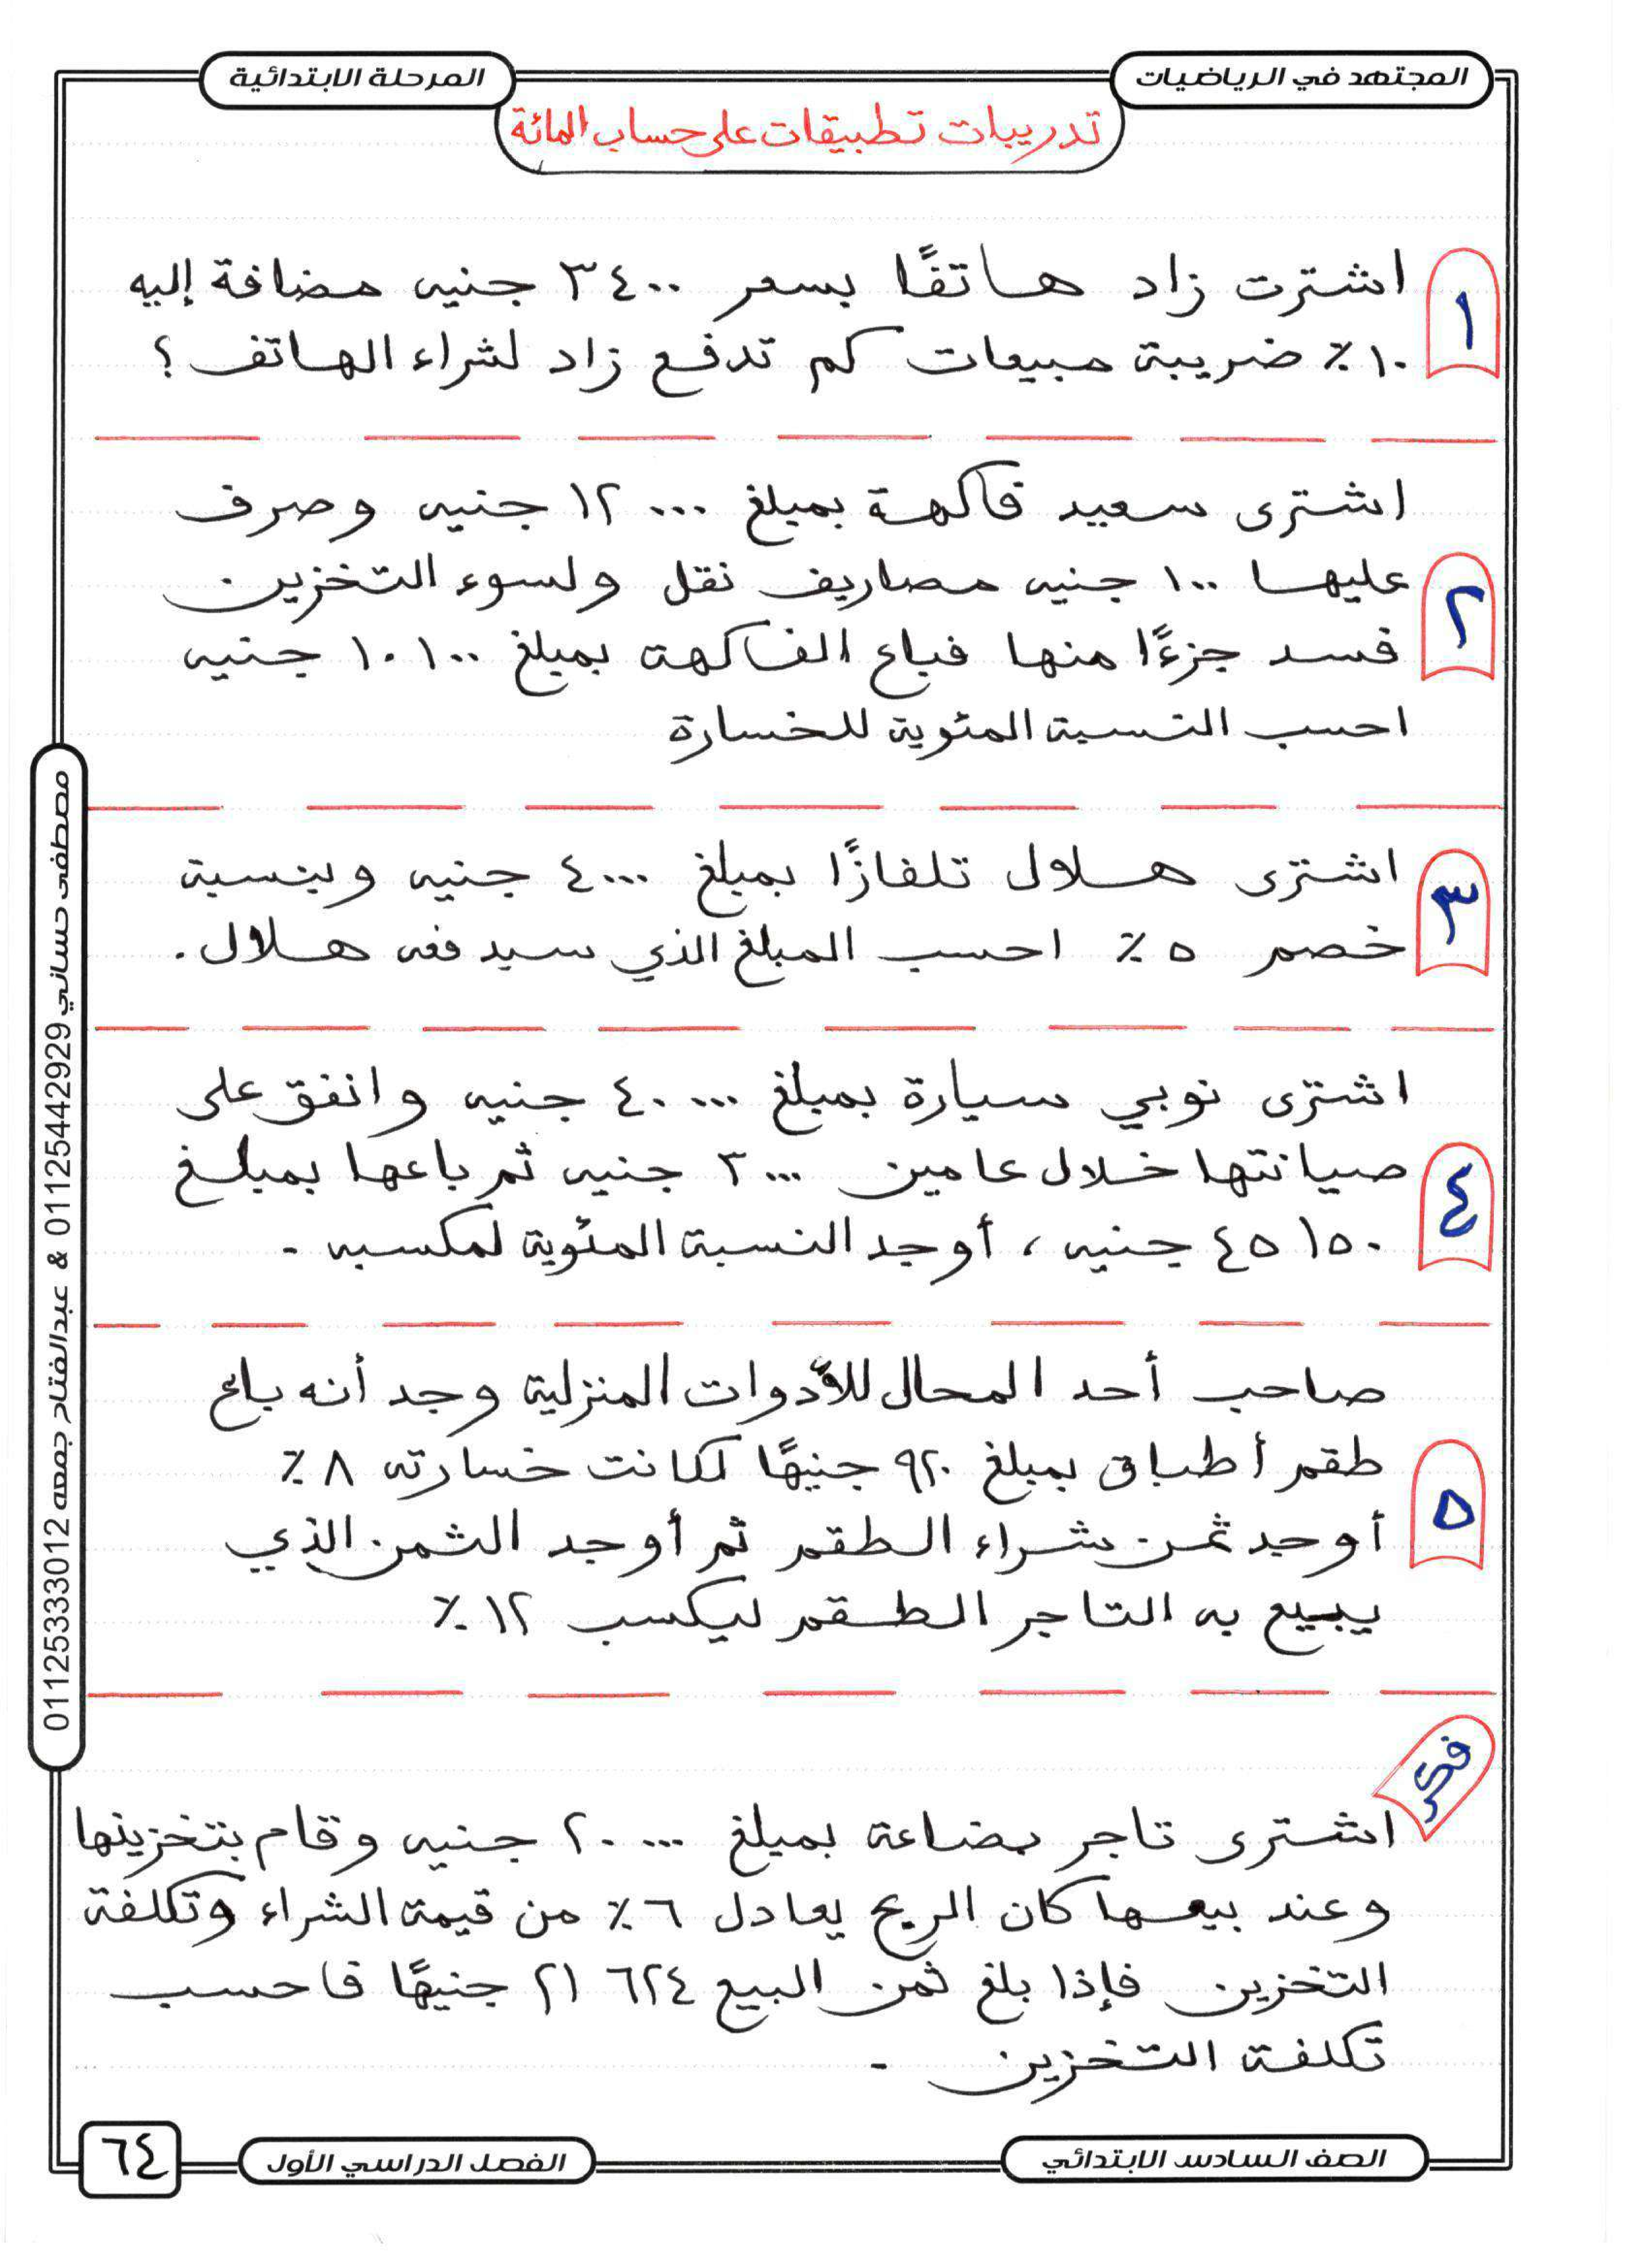 المجتهد في الرياضيات
المرحلة الابتدائية
تدريبات تطبيقات على حساب المائة
١
اشترت زاد هاتفًا بسعر ٣٤٠٠ جنيه مضافة إليه
١٠٪ ضريبة مبيعات كم تدفع زاد لشراء الهاتف؟
٢
اشترى سعيد فاكهة بمبلغ ١٢٠٠٠ جنيه وصرف
عليها ١٠٠ جنيه مصاريف نقل ولسوء التخزين
فسد جزءًا منها فباع الفاكهة بمبلغ ١٠١٠٠ جنيه
احسب النسبة المئوية للخسارة
٣
اشترى هلال تلفازًا بمبلغ ٤٠٠٠ جنيه وبنسبة
خصم ٥٪ احسب المبلغ الذي سيدفعه هلال.
٤
اشترى نوبي سيارة بمبلغ ٤٠٠٠٠ جنيه وانفق على
صيانتها خلال عامين ٣٠٠٠ جنيه ثم باعها بمبلغ
٤٥١٥٠ جنيه، أوجد النسبة المئوية لمكسبه.
٥
صاحب أحد المحال للأدوات المنزلية وجد أنه باع
طقم أطباق بمبلغ ٩٢٠ جنيهًا لكانت خسارته ٨٪
أوجد ثمن شراء الطقم ثم أوجد الثمن الذي
يبيع به التاجر الطقم ليكسب ١٢٪
فكر
اشترى تاجر بضاعة بمبلغ ٢٠٠٠٠ جنيه وقام بتخزينها
وعند بيعها كان الربح يعادل ٦٪ من قيمة الشراء وتكلفة
التخزين فإذا بلغ ثمن البيع ٢١٦٢٤ جنيهًا فاحسب
تكلفة التخزين.
مصطفى حساني 01125442929 & عبدالفتاح جمعه 01125333012
الصف السادس الابتدائي
الفصل الدراسي الأول
٦٤